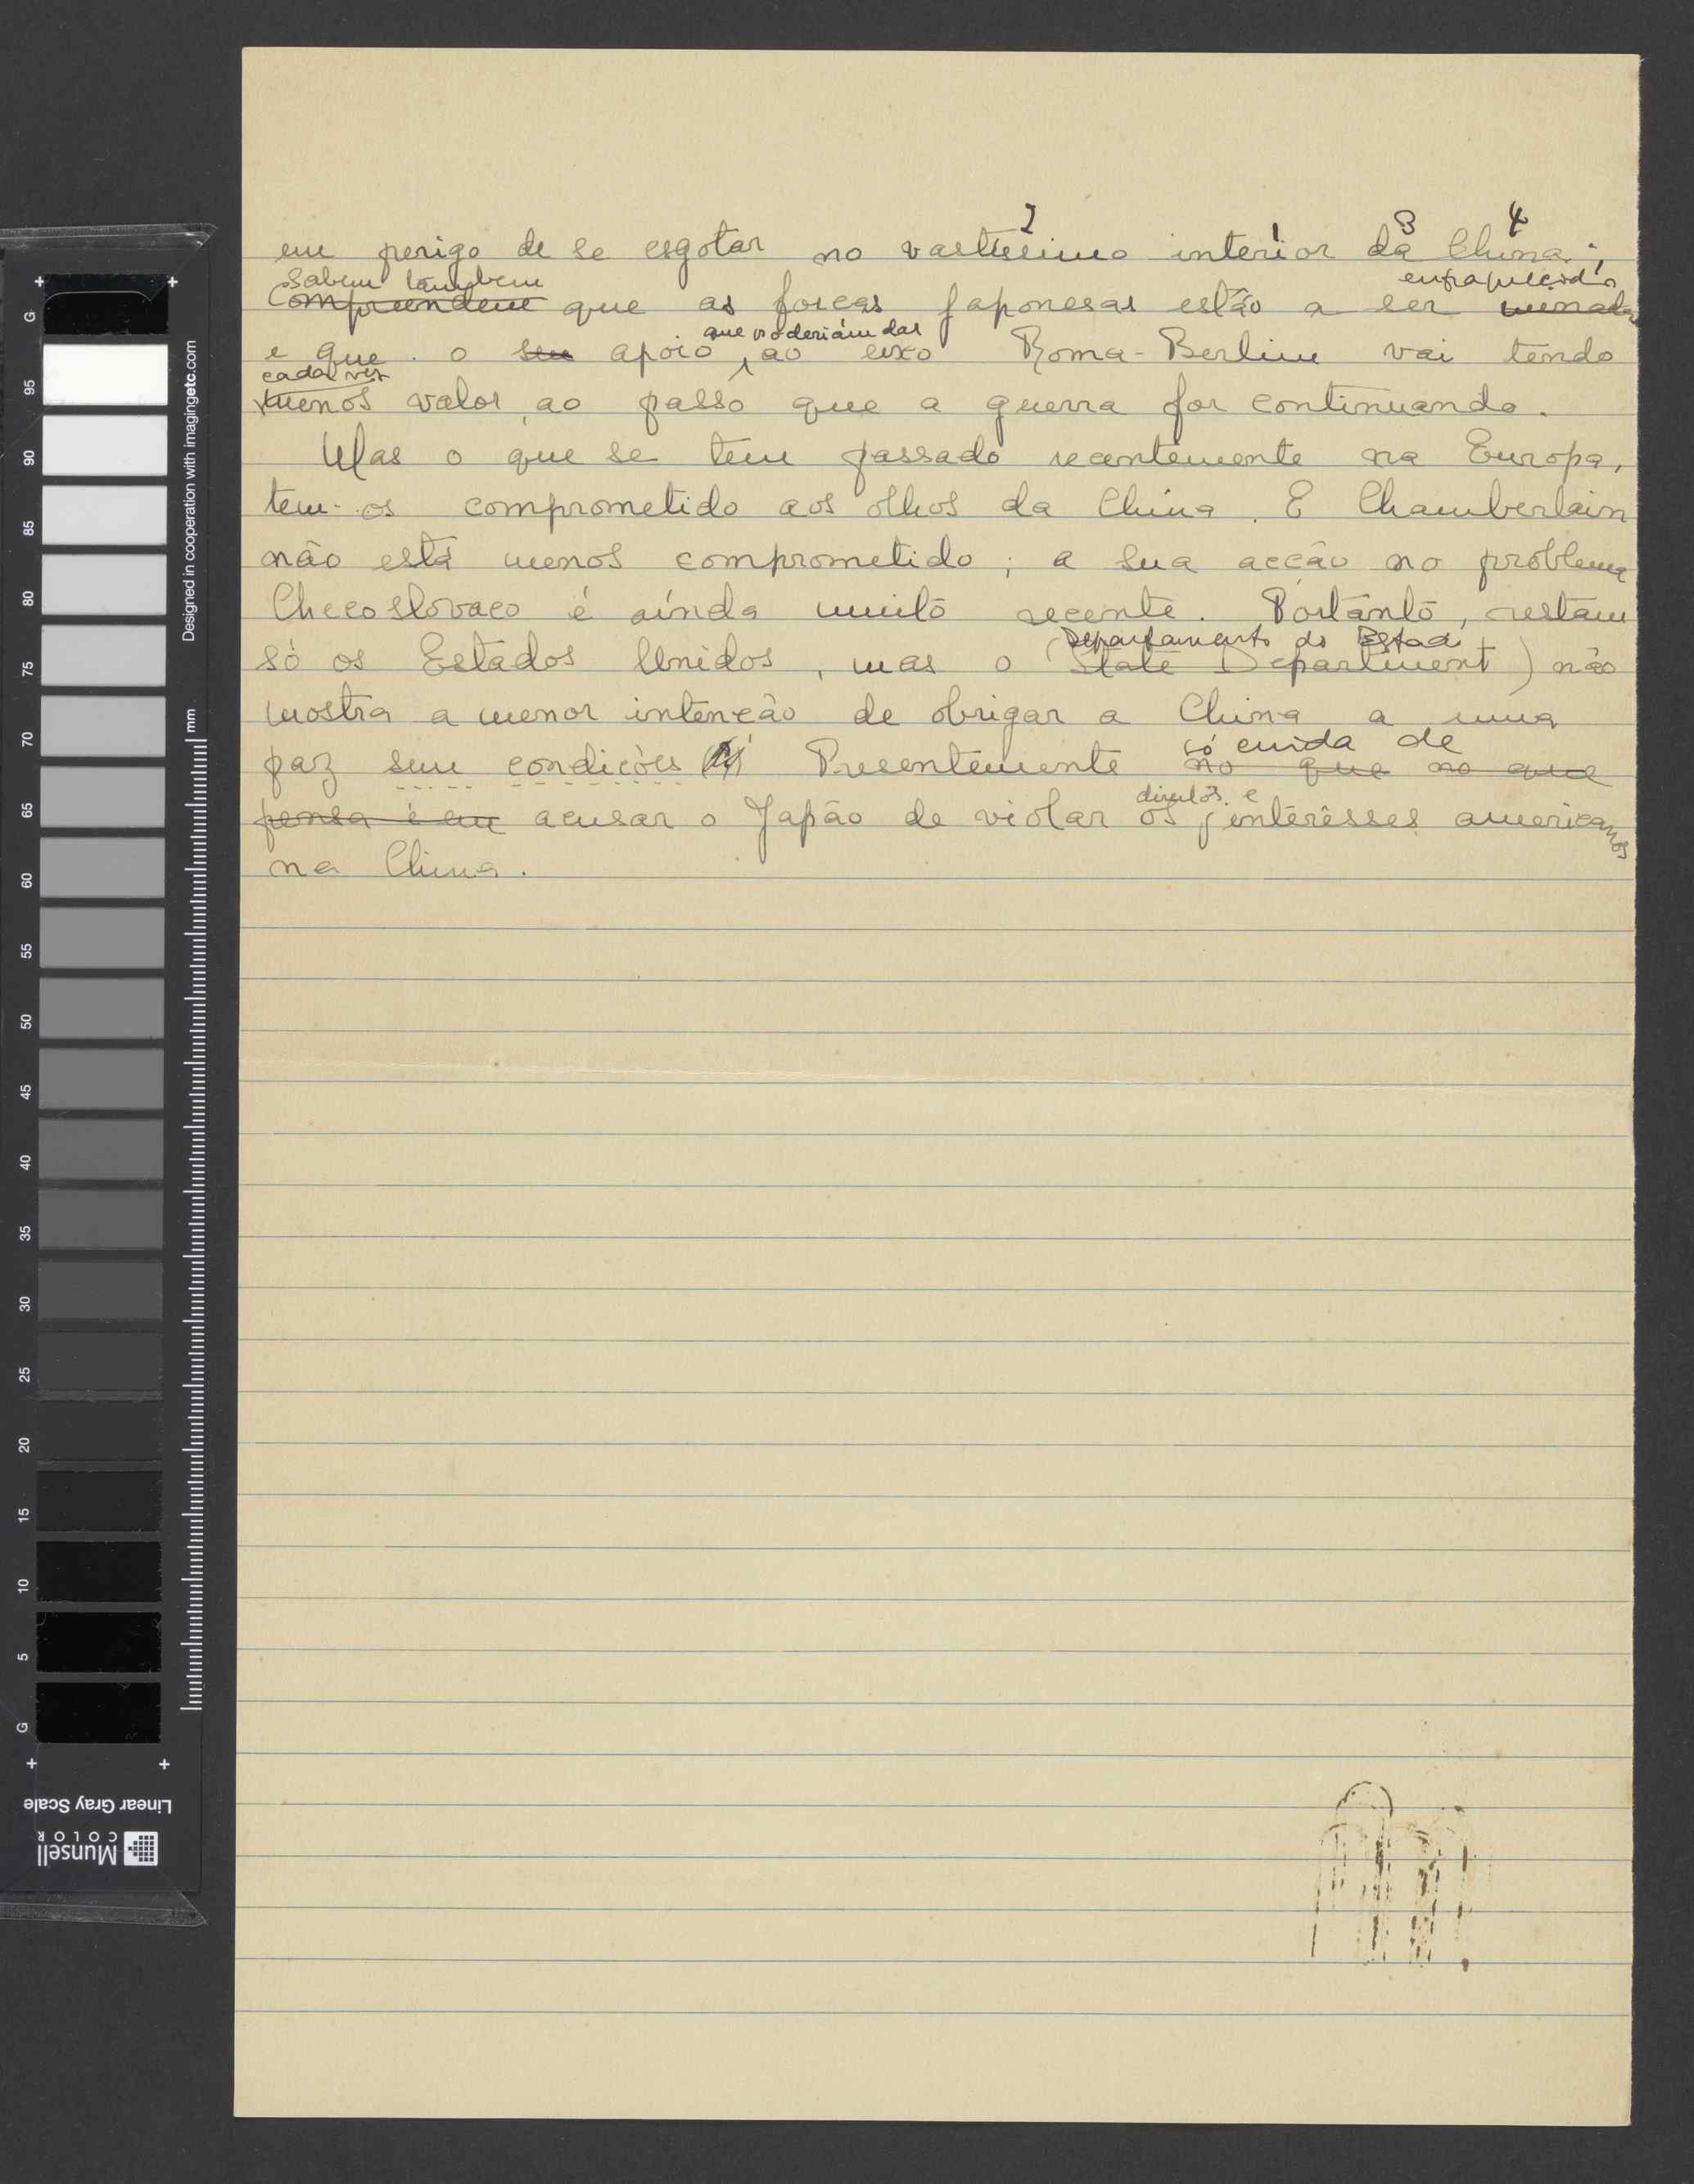 2 1 3 4
em perigo de se esgotar no vastíssimo interior da China;
sabem tambem enfraquecidas
Compreendem que as forcas Japonesas estão a ser minadas
que poderiam dar
e que o seu apoio ao eixo Roma-Berlim vai tendo
cada vez
menos valor, ao passo que a guerra for continuando.
Mas o que se tem passado recentemente na Europa,
tem-os comprometido aos olhos da China. E Chamberlain
não está menos comprometido; a sua acção no problema
Checoslovaco é aínda muito recente. Portanto, restam
Departamento do Estado
só os Estados Unidos, mas o (State Department) não
mostra a menor intenção de obrigar a China a uma
só cuida de
paz sem condições Presentemente no que no que
direitos e
pensa é em acusar o Japão de violar os interêsses americanos
na China.
G
95
90
85
80
75
70
65
60
55
50
45
40
35
30
25
20
15
10
5
G
mm
Designed in cooperation with imagingetc.com
Linear Gray Scale
Munsell
COLOR